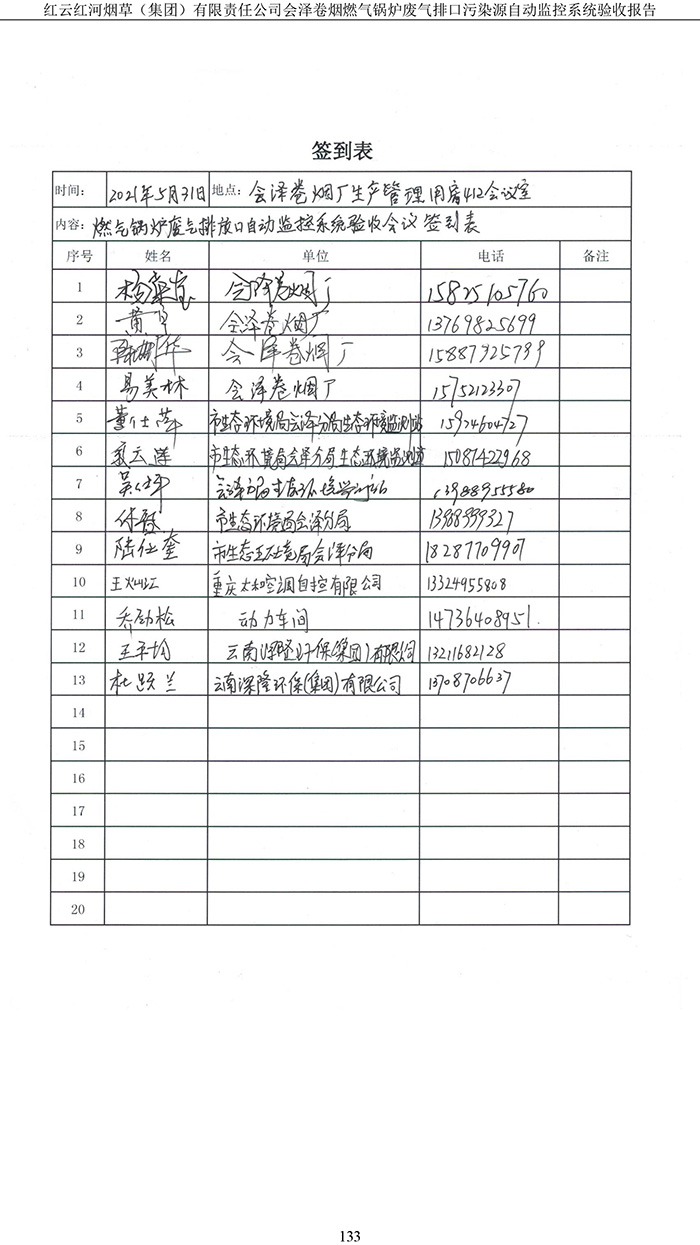 红云红河烟草（集团）有限责任公司会泽卷烟燃气锅炉废气排口污染源自动监控系统验收报告
签到表
时间： 2021年5月31日 地点： 会泽卷烟厂生产管理用房412会议室
内容： 燃气锅炉废气排放口自动监控系统验收会议 签到表
序号 姓名 单位 电话 备注
1 会泽卷烟厂 15825105760
2 会泽卷烟厂 13769825699
3 会泽卷烟厂
4 易美林 会泽卷烟厂 15752123307
5 董仕萍 市生态环境局会泽分局生态环境监测站 15924604727
6 市生态环境局会泽分局生态环境监测站 15087422968
7 13988955580
8 市生态环境局会泽分局
9 陆仕奎 市生态环境局会泽分局 18287709907
10 重庆太和空调自控有限公司 13324955808
11 乔劲松 动力车间 14736408951
12 云南深隆环保(集团)有限公司 13211682128
13 云南深隆环保(集团)有限公司 13708706637
14
15
16
17
18
19
20
133